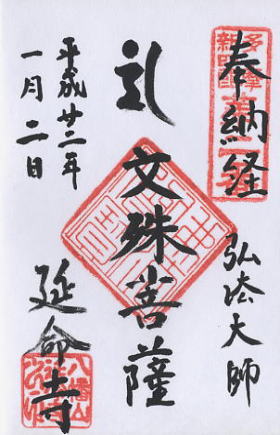 奉納経
弘法大師
礼文殊菩薩
平成廿三年
一月二日
延命寺
八幡山